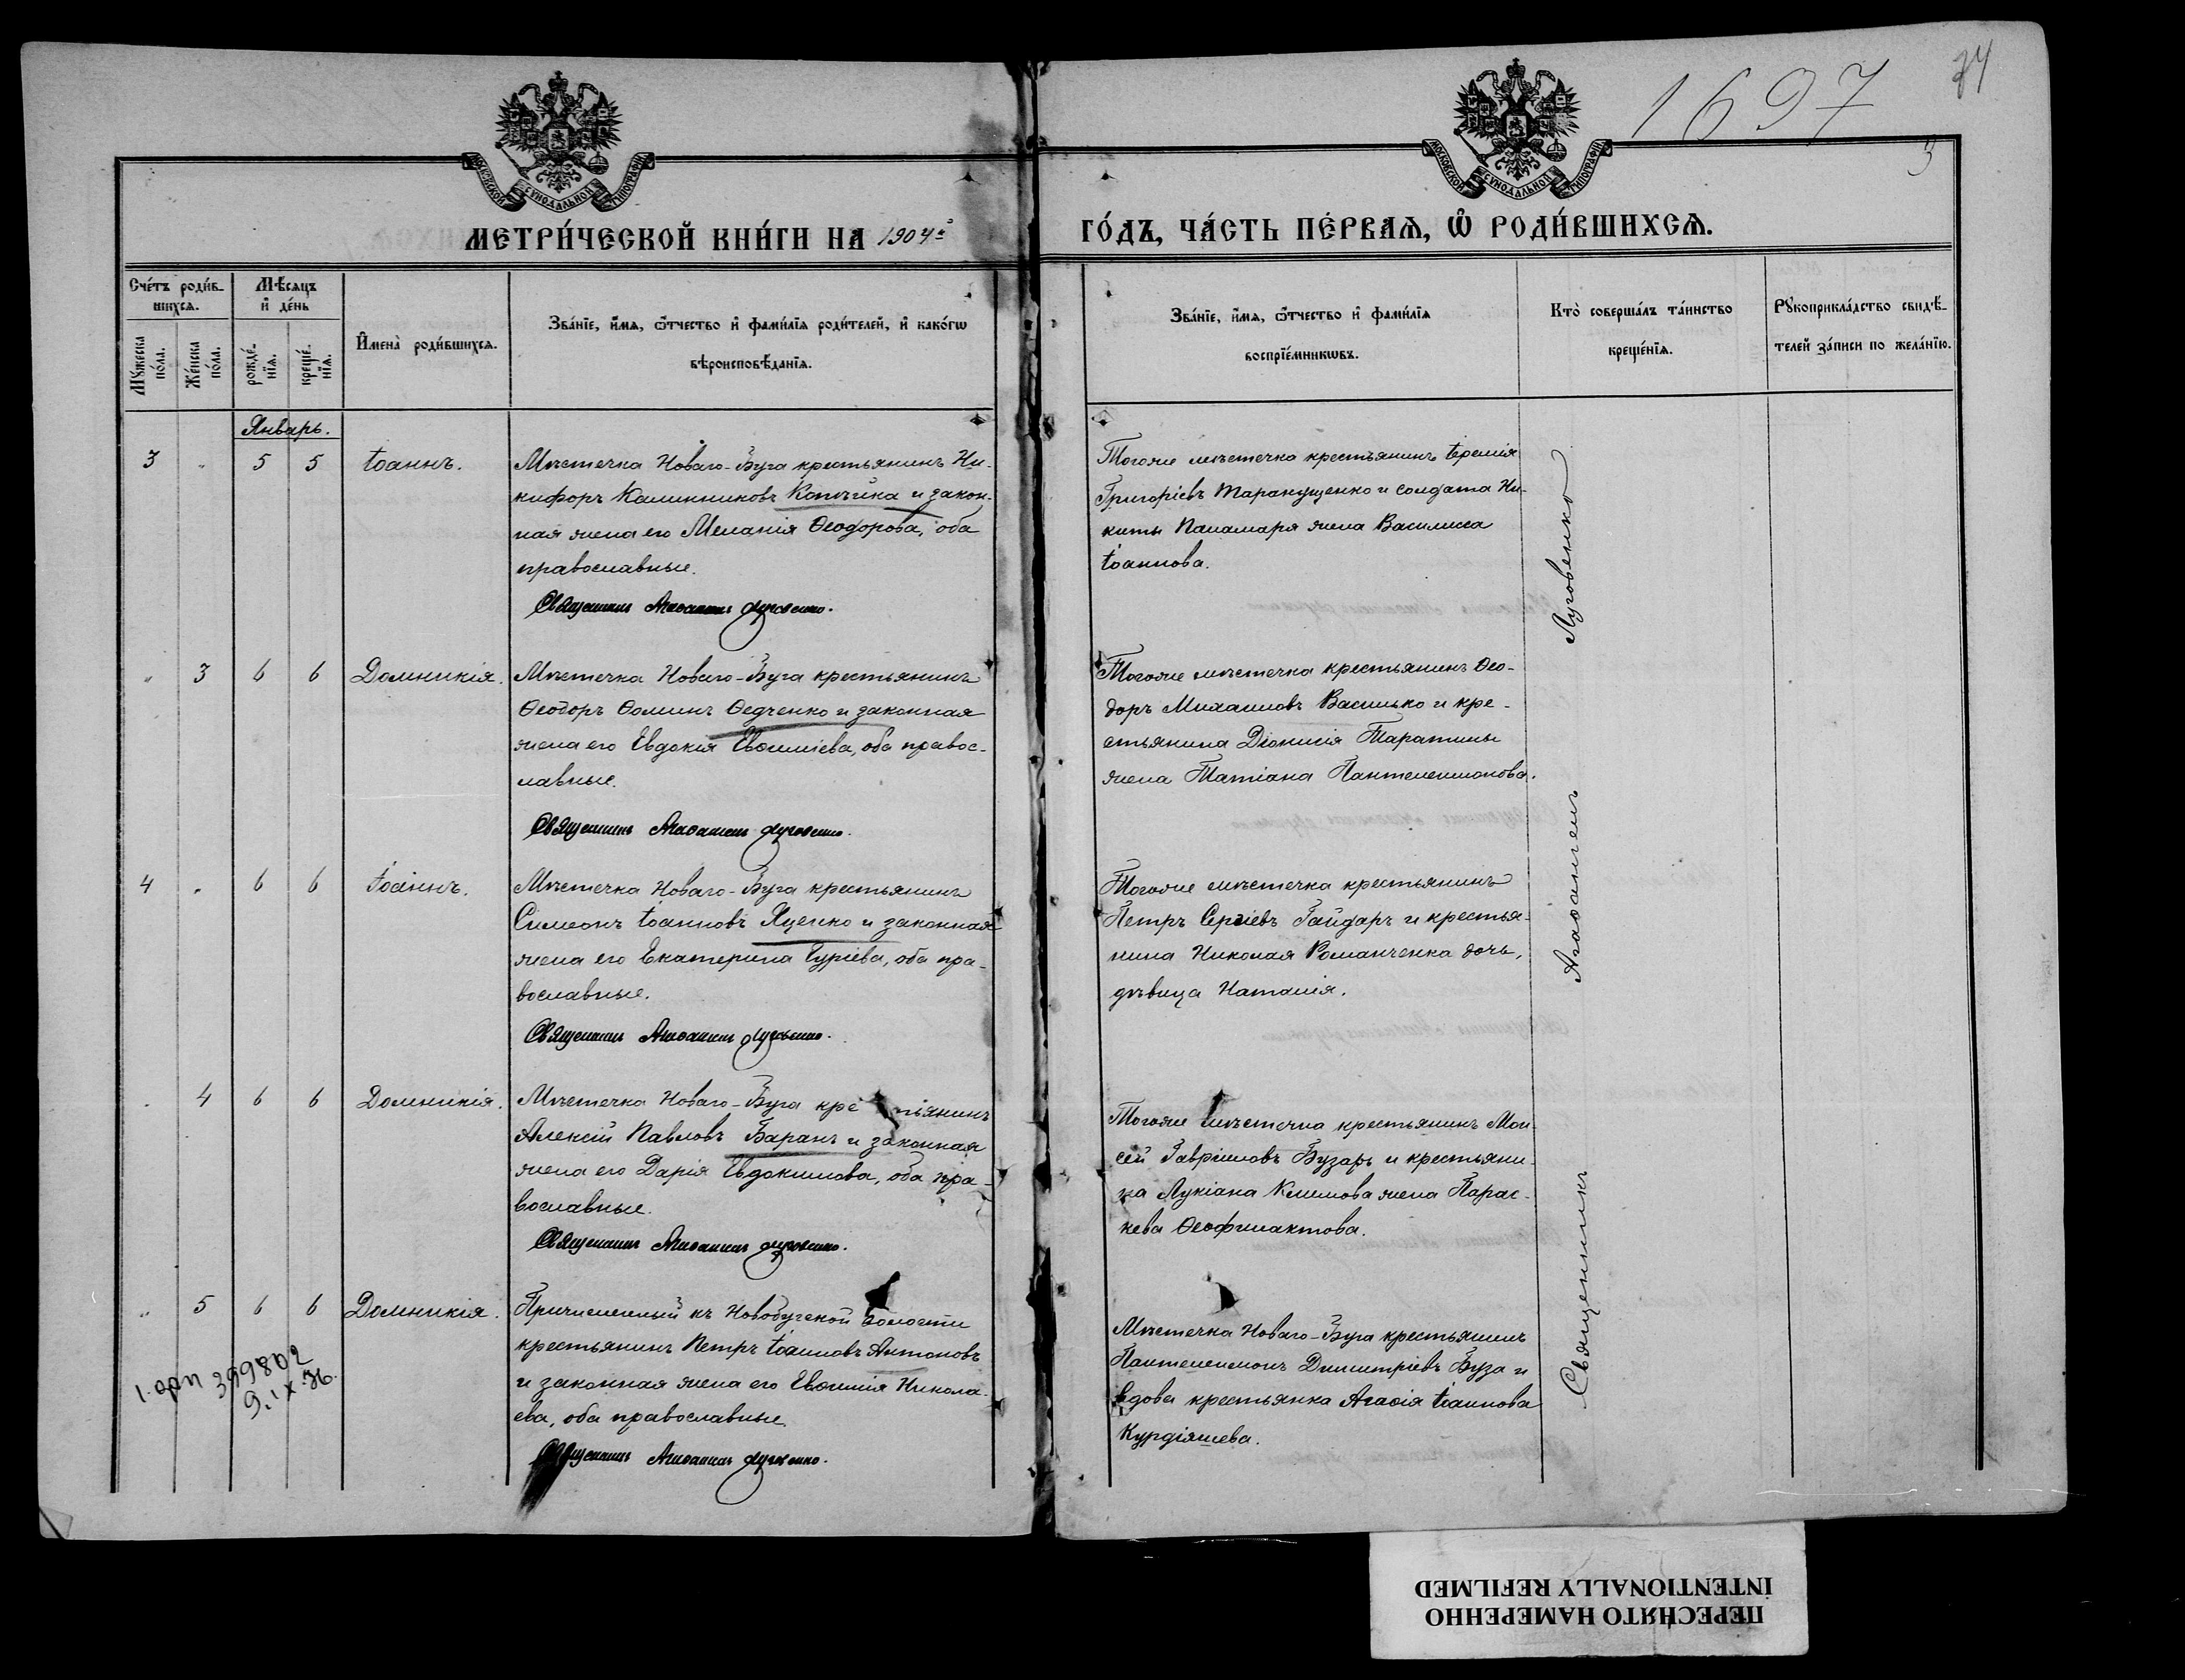 1697
34
3
МОСКОВСКОЙ СѴНОДАЛЬНОЙ ТИПОГРАФІИ
МОСКОВСКОЙ СѴНОДАЛЬНОЙ ТИПОГРАФІИ
МЕТРИ́ЧЕСКОЙ КНИ́ГИ НА 1904й
ГО́ДЪ, ЧА́СТЬ ПЕ́РВАѦ, Ѡ҆ РОДИ́ВШИХСѦ.
Сче́тъ роди́в-
шихсѧ.
Мꙋ́жеска
по́ла.
Же́нска
по́ла.
Мѣ́сѧцъ
и҆ де́нь
рожде́-
нїѧ.
креще́-
нїѧ.
И҆мена̀ роди́вшихсѧ.
Зва́нїе, и҆́мѧ, ѻ҆́тчество и҆ фами́лїѧ роди́телей, и҆ како́гѡ
вѣроисповѣ́данїѧ.
Зва́нїе, и҆́мѧ, ѻ҆́тчество и҆ фами́лїѧ
воспрїе́мникѡвъ.
Кто̀ соверша́лъ та́инство
креще́нїѧ.
Рꙋкоприкла́дство свидѣ́-
телей за́писи по жела́нїю.
Январь.
3 " 5 5 Іоаннъ.
Мѣстечка Новаго-Буга крестьянинъ Ни-
кифоръ Калинниковъ Копчика и закон-
ная жена его Меланія Ѳеодорова, оба
православные.
Священникъ Агаѳангелъ Луговенко.
Тогоже мѣстечка крестьянинъ Іеремія
Григоріевъ Таранущенко и солдата Ни-
киты Паламаря жена Василисса
Іоаннова.
" 3 6 6 Домникія.
Мѣстечка Новаго-Буга крестьянинъ
Ѳеодоръ Ѳоминъ Ѳедченко и законная
жена его Евдокія Евѳиміева, оба правос-
лавные.
Священникъ Агаѳангелъ Луговенко.
Тогоже мѣстечка крестьянинъ Ѳео-
доръ Михаиловъ Василько и кре-
стьянина Діонисія Таратины
жена Татіана Пантелеимонова.
4 " 6 6 Іоаннъ.
Мѣстечка Новаго-Буга крестьянинъ
Симеонъ Іоанновъ Яценко и законная
жена его Екатерина Гуріева, оба пра-
вославные.
Священникъ Агаѳангелъ Луговенко.
Тогоже мѣстечка крестьянинъ
Петръ Сергіевъ Гайдаръ и крестья-
нина Николая Романченка дочь,
дѣвица Наталія.
" 4 6 6 Домникія.
Мѣстечка Новаго-Буга крестьянинъ
Алексій Павловъ Баранъ и законная
жена его Дарія Евдокимова, оба пра-
вославные.
Священникъ Агаѳангелъ Луговенко.
Тогоже мѣстечка крестьянинъ Мои-
сей Гавріиловъ Бузаръ и крестьяни-
на Лукіана Климова жена Парас-
кева Ѳеофилактова.
" 5 6 6 Домникія.
Причисленный къ Новобугской волости
крестьянинъ Петръ Іоанновъ Антоновъ
и законная жена его Евѳимія Никола-
ева, оба православные.
Священникъ Агаѳангелъ Луговенко.
Мѣстечка Новаго-Буга крестьянинъ
Пантелеимонъ Димитріевъ Буза и
вдова крестьянка Агаѳія Іоаннова
Курдіяшева.
Священникъ Агаѳангелъ Луговенко
9.IX.36.
ПЕРЕСНЯТО НАМЕРЕННО
INTENTIONALLY REFILMED